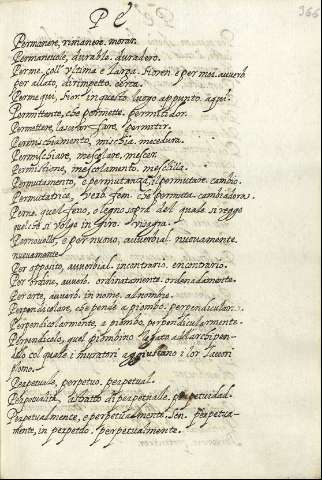 P E
366
Permanere, rimanere. morar.
Permaneuole, durabile. duradero.
Perme, coll' vltima e larga. fioren. e per mea. auuerb.
per allato, dirimpetto. cerca.
Perme qui, fior. in questo luogo appunto. aqui.
Permittente, che permette. permitidor.
Permettere, lasciar fare. permitir.
Permischiamento, mischia. mecedura.
Permischiare, mesçolare. mescer.
Permistione, mescolamento. meschilla.
Permutamento, e permutanza, il permutare. cambio.
Permutatrice, verb. fem. che permuta. cambiadora.
Perno, quel ferro, o legno sopra del quale si regge
quel che si volge in giro. visagra.
Pernouello, e per nuouo, auuerbial. nuouamente.
nueuamente.
Per opposto, auuerbial. incontrario. en contrario.
Per ordine, auuerb. ordinatamente. ordenadamente.
Per orte, auuerb. in nome. ad nombre.
Perpendicolare, che pende a piombo. perpendicular.
Perpendicolarmente, a piombo. perpendicularmente.
Perpendicolo, quel piombino legato all'archipen-
zolo col quale i muratori aggiustano i lor lauori
plomo.
Perpetuale, perpetuo. perpetual.
Perpetualità, astratto di perpetuale. perpetuidad.
Perpetualmente, e perpetualemente. Sen. perpetua-
mente, in perpetuo. perpetualmente.